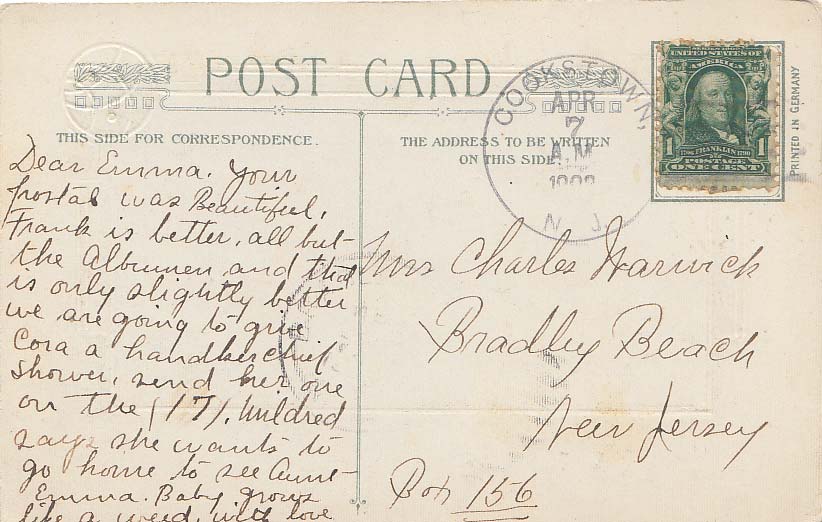 POST CARD
THIS SIDE FOR CORRESPONDENCE.
THE ADDRESS TO BE WRITTEN
ON THIS SIDE
COOKSTOWN,
APR
7
A.M
N. J.
SERIES 1902
UNITED STATES OF
AMERICA
1 1
1706 FRANKLIN 1790
POSTAGE
ONE CENT
PRINTED IN GERMANY
Dear Emma. Your
postal was Beautiful,
Frank is better, all but
the Albumen, and that
is only slightly better
we are going to give
Cora a handkerchief
shower, send her one
on the (17). Mildred
says she wants to
go home to see Aunt
Emma. Baby grows
like a weed, with love
Mrs Charles Warwick
Bradley Beach
New Jersey
Box 156